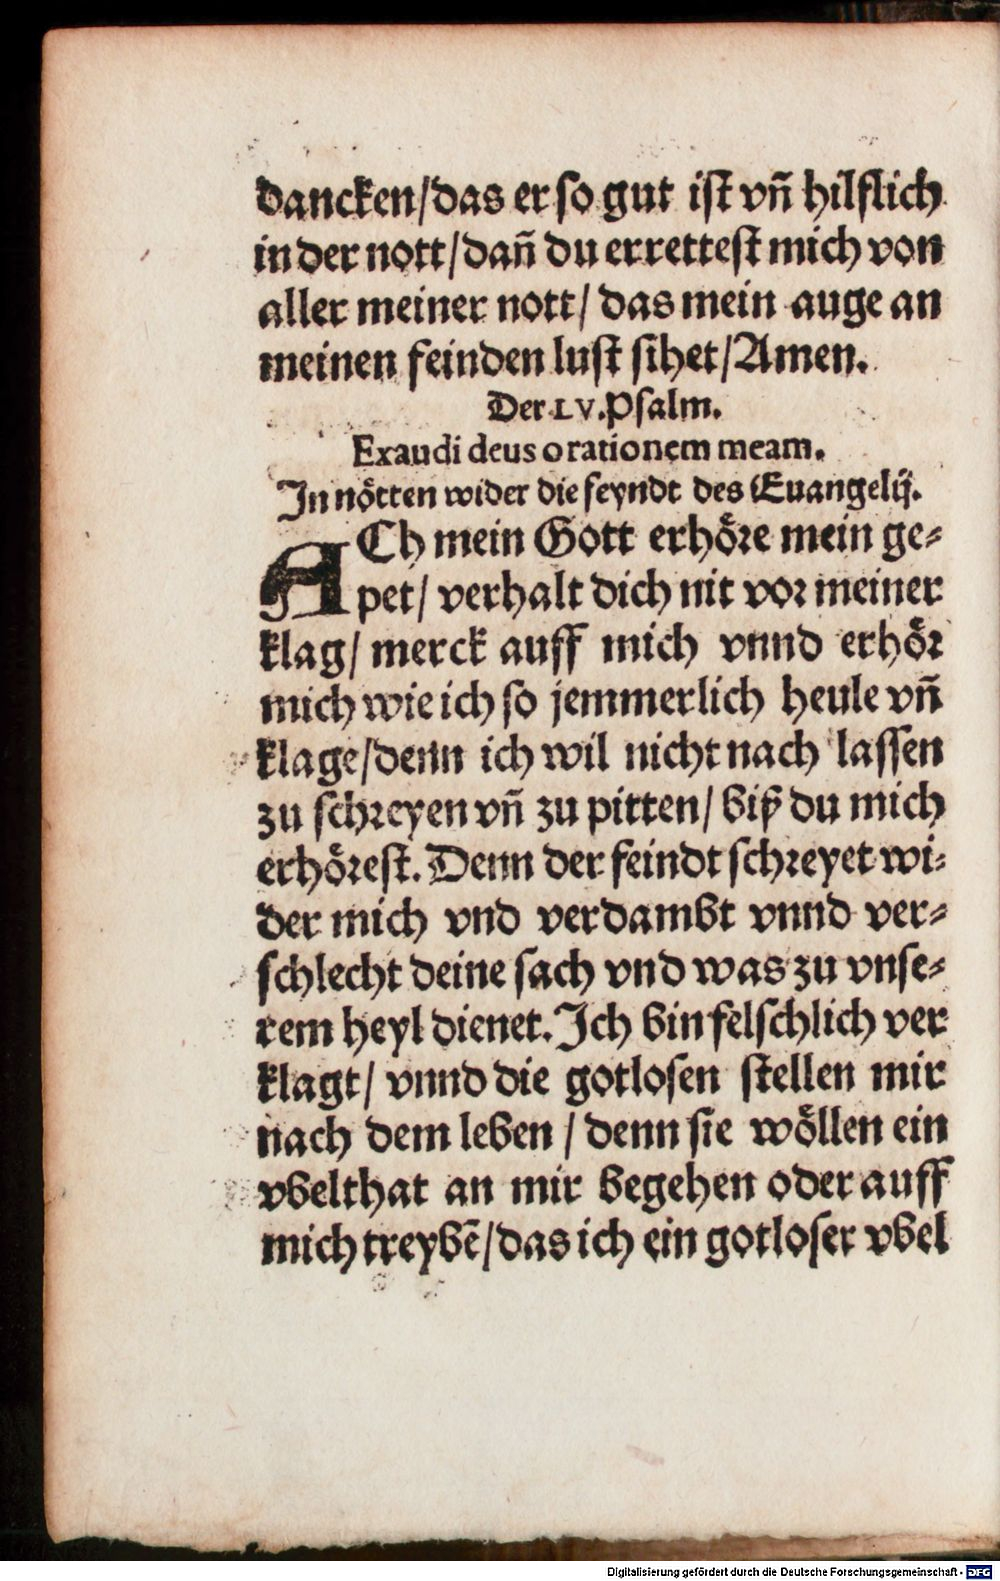 dancken/das er so gut ist vñ hilflich
in der nott/dañ du errettest mich von
aller meiner nott/ das mein auge an
meinen feinden lust sihet/Amen.
Der LV. Psalm.
Exaudi deus orationem meam.
In nötten wider die feyndt des Euangelij.
ACh mein Gott erhöre mein ge-
pet/ verhalt dich nit vor meiner
klag/ merck auff mich vnnd erhör
mich wie ich so jemmerlich heule vñ
klage/denn ich wil nicht nach lassen
zu schreyen vñ zu pitten/ biß du mich
erhörest. Denn der feindt schreyet wi-
der mich vnd verdambt vnnd ver-
schlecht deine sach vnd was zu vnse-
rem heyl dienet. Ich bin felschlich ver
klagt/ vnnd die gotlosen stellen mir
nach dem leben / denn sie wöllen ein
vbelthat an mir begehen oder auff
mich treybē/das ich ein gotloser vbel
Digitalisierung gefördert durch die Deutsche Forschungsgemeinschaft - DFG